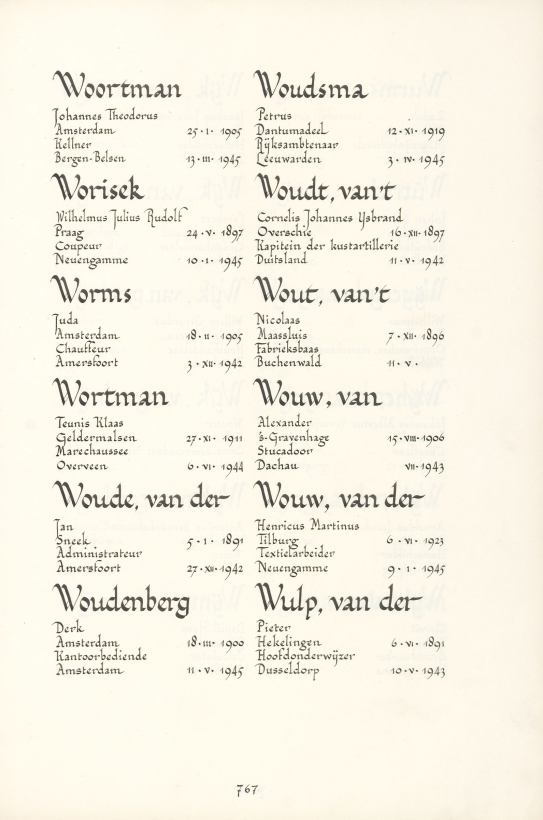 Woortman
Johannes Theodorus
Amsterdam 25·I·1905
Kellner
Bergen-Belsen 13·III·1945
Worisek
Wilhelmus Julius Rudolf
Praag 24·V·1897
Coupeur
Neuengamme 10·I·1945
Worms
Juda
Amsterdam 18·II·1905
Chauffeur
Amersfoort 3·XII·1942
Wortman
Teunis Klaas
Geldermalsen 27·XI·1911
Marechaussee
Overveen 6·VI·1944
Woude, van der
Jan
Sneek 5·I·1891
Administrateur
Amersfoort 27·XII·1942
Woudenberg
Derk
Amsterdam 18·III·1900
Kantoorbediende
Amsterdam 11·V·1945
Woudsma
Petrus
Dantumadeel 12·XI·1919
Rijksambtenaar
Leeuwarden 3·IV·1945
Woudt, van't
Cornelis Johannes IJsbrand
Overschie 16·XII·1897
Kapitein der kustartillerie
Duitsland 11·V·1942
Wout, van't
Nicolaas
Maassluis 7·XII·1896
Fabrieksbaas
Buchenwald 11·V·
Wouw, van
Alexander
's-Gravenhage 15·VIII·1906
Stucadoor
Dachau VII·1943
Wouw, van der
Henricus Martinus
Tilburg 6·VI·1923
Textielarbeider
Neuengamme 9·I·1945
Wulp, van der
Pieter
Hekelingen 6·VI·1891
Hoofdonderwijzer
Dusseldorp 10·V·1943
767